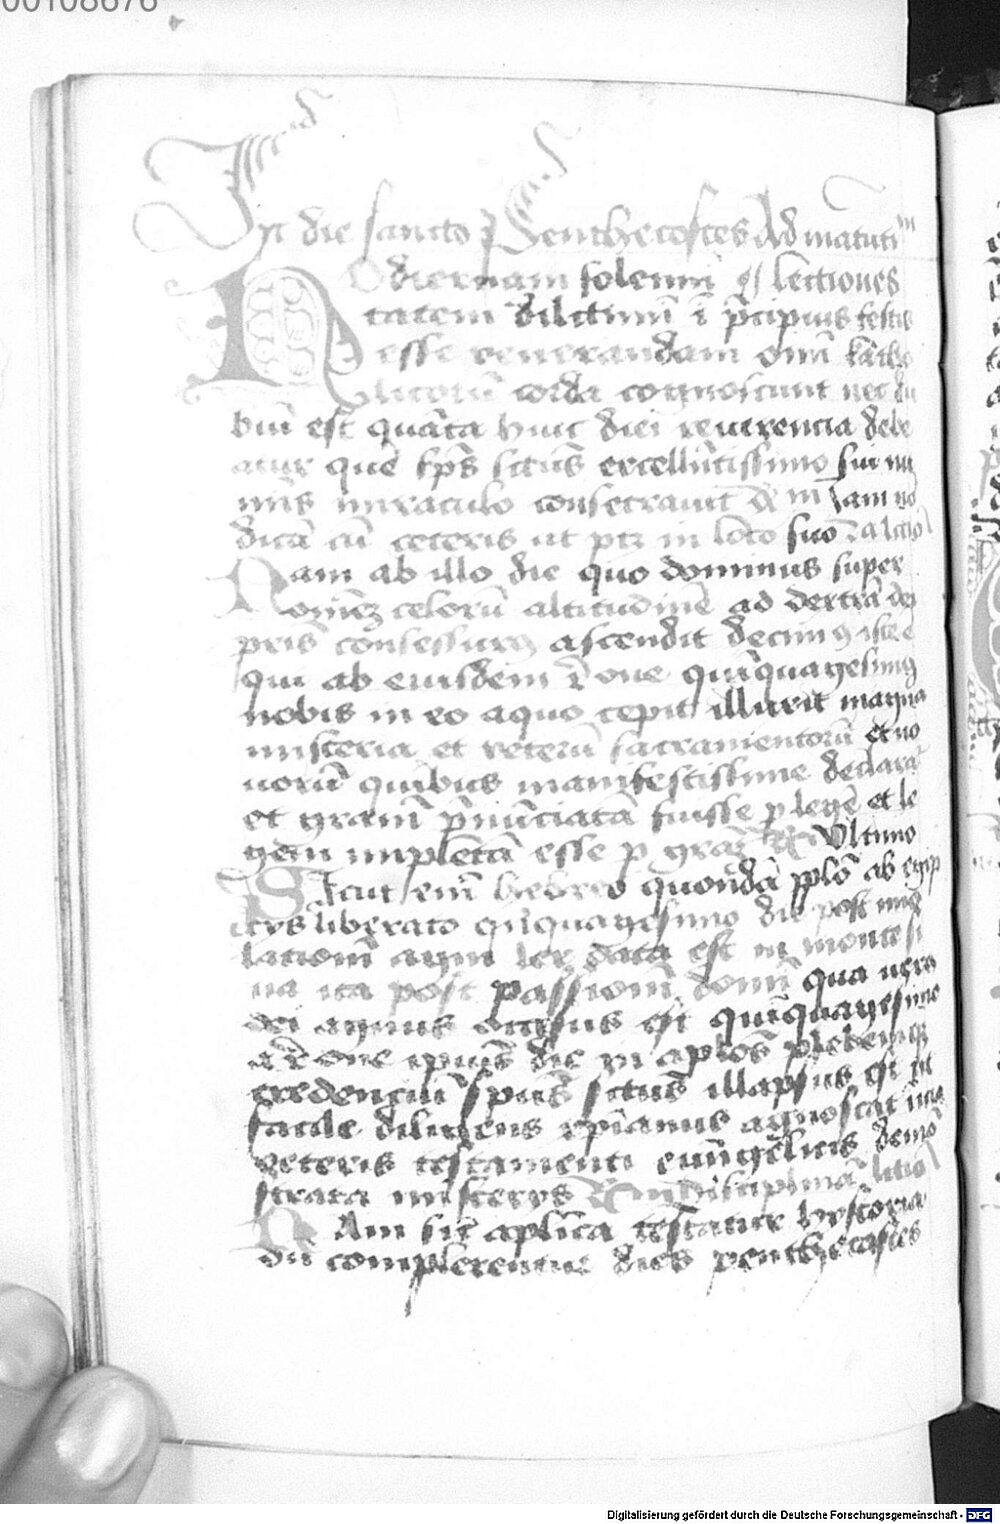 00108676
In die sancto Penthecostes Ad matuti
Hodiernam solenni lectiones
tatem dilectissimi ī p̄cipuis festis
esse venerandam omīu katho
licorū corda cognoscunt nec du
biū est quāta huic diei reuerencia debe
atur quē sp̄s sctūs excellētissimo sui mu
nīis miraculo consecrauit
dicā cū ceteris ut ptz in loco suo lectio
Nam ab illo die quo dominus super
omnēz celorū altitudinē ad dextrā dei
pris consessurus ascendit decimus iste ē
qui ab eiusdem r̄ōne quīquagesimus
nobis in eo a quo cepit illuxit magna
misteria et veterū sacramentorū et no
uorū quibus manifestissime declarat
et gracīa p̄nūciatā fuisse p legē et le
gem impletā esse p grāz Vltimo
Sicut enī hebreo quondā pplō ab egip
tys liberato qnquagesimo die post imo
lacionē agni lex data est in monte si
na ita post passionē domī qua uerus
dei agnus occisus est quīquagesimo
a r̄ōne ipius die in aplōs plebemq
credenciū sp̄us sctūs illapsus est ut
facile diligens xp̄ianus agnoscat inicia
veteris testamenti euūgelicis demō
strata misterys disciplinā lectio
Nam sic aplīca testatur hystoria
Dū complerentur dies penthecostes
Digitalisierung gefördert durch die Deutsche Forschungsgemeinschaft - DFG